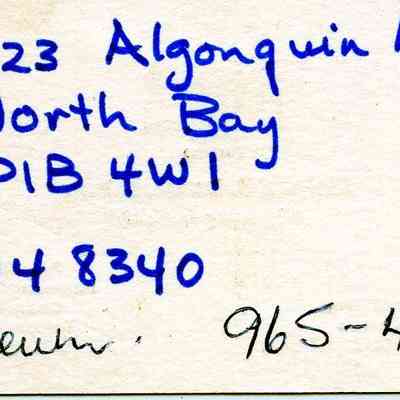 23 Algonquin
North Bay
P1B 4W1
4 8340
965-4